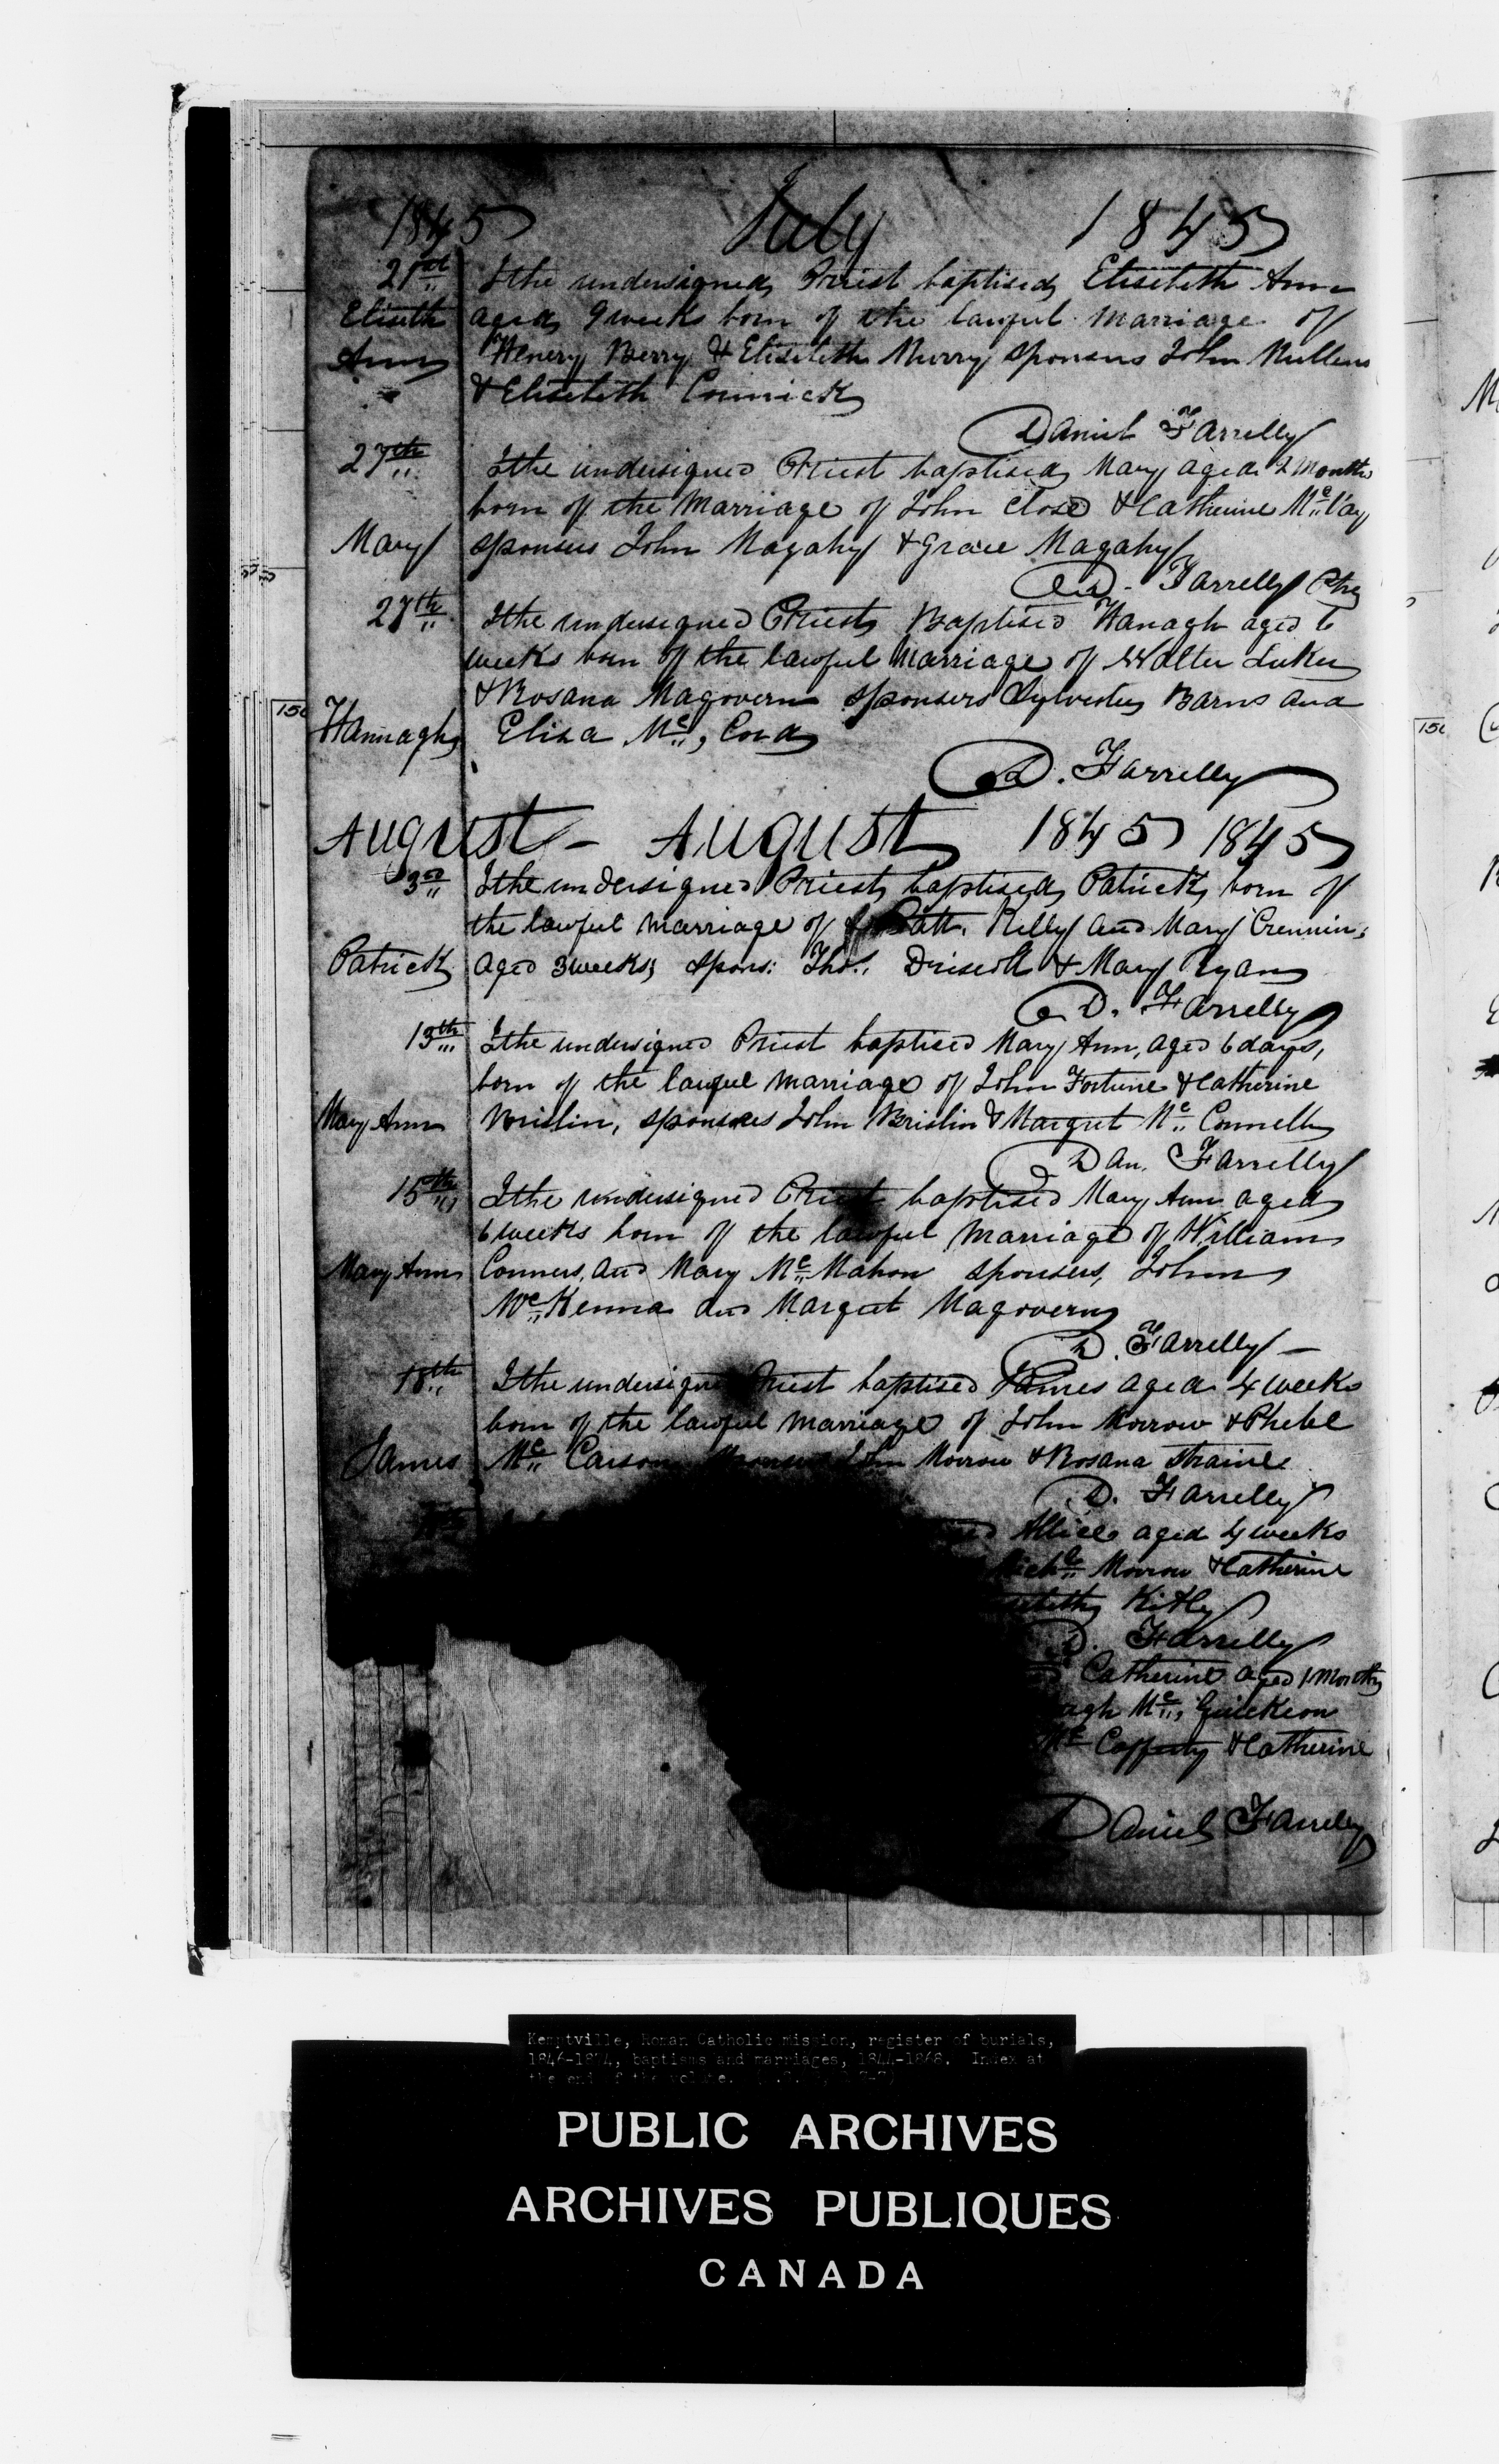 1845 July 1845
21st I the undersigned Priest baptised Elisebeth Ann
Eliseth aged 9 weeks born of the lawful marriage of
Ann Henery Berry & Elisebeth Murry sponsers John Mullens
& Elisebeth Cormick
Daniel Farrelly
27th I the undersigned Priest baptised Mary aged 2 Months
born of the Marriage of John Close & Catherine Mc
Mary sponsers John Magahy & Grace Magahy
D. Farrelly
27th I the undersigned Priest Baptised Hanagh aged 6
weeks born of the lawful Marriage of Walter
& Rosana Magovern sponsers Sylvester Barns and
Hannagh Eliza Mc, Cord
D. Farrelly
August - August 1845 1845
3rd I the undersigned Priest baptised Patrick born of
the lawful marriage of Patt. Kelly and Mary
Patrick aged 3 weeks; spons: Thos. Driscoll & Mary Ryan
D. Farrelly
13th I the undersigned Priest baptised Mary Ann, aged 6 days,
born of the lawful marriage of John Fortune & Catherine
Mary Ann Brislin, sponsers John Brislin & Margret Mc Connell
Dan. Farrelly
15th I the undersigned Priest baptised Mary Ann aged
6 weeks born of the lawful marriage of William
Mary Ann Conners, and Mary Mc Mahon sponsers, John
Mc Kenna and Margret Magovern
D. Farrelly
18th I the undersigned Priest baptised James aged 4 weeks
born of the lawful marriage of John Morrow & Phebe
James Mc Carson sponsers John Morrow & Rosana Straine
D. Farrelly
Allice aged 4 weeks
Morrow & Catherine
Kitly
D. Farrelly
Catherine aged 1 Month
Mc, Guickeon
Mc Cafferty & Catherine
Daniel Farrelly
Kemptville, Roman Catholic mission, register of burials,
1846-1874, baptisms and marriages, 1844-1868. Index at
the end of the volume.
PUBLIC ARCHIVES
ARCHIVES PUBLIQUES
CANADA